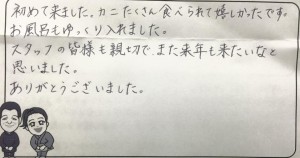 初めて来ました。カニたくさん食べられて嬉しかったです。
お風呂もゆっくり入れました。
スタッフの皆様も親切で、また来年も来たいなと
思いました。
ありがとうございました。